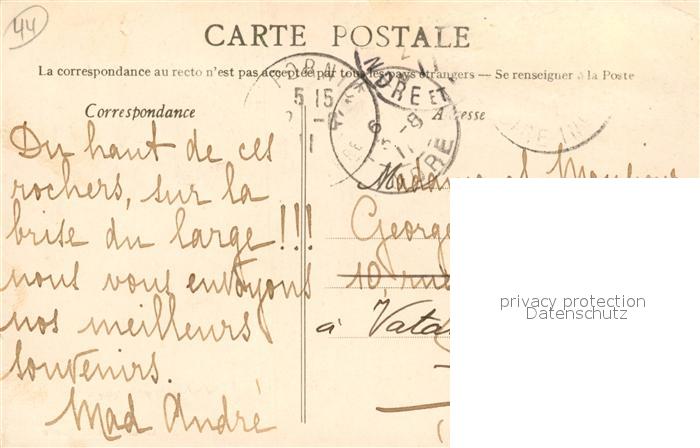 44
CARTE POSTALE
La correspondance au recto n'est pas acceptée par tous les pays étrangers — Se renseigner à la Poste
Correspondance
Du haut de ces
rochers, sur la
brise du large!!!
nous vous envoyons
nos meilleurs
souvenirs.
Mad André
PORNI
5 15
11
INDRE ET
Adresse
Madame et Monsieur
George
10, rue
à Vata
privacy protection
Datenschutz